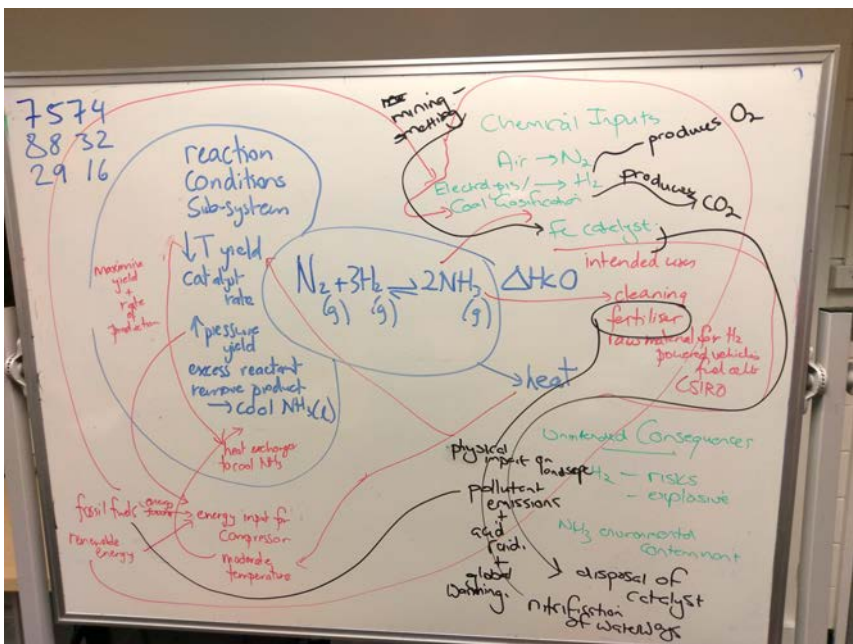 7574
88 32
29 16
reaction
Conditions
Sub-system
↓ T yield
catalyst
rate
↑ pressure
yield
excess reactant
remove product
→ Cool NH₃(l)
Maximise
yield
+
rate
of
production
heat exchanger
to cool NH₃
fossil fuels
renewable
energy
energy input for
Compressor
moderate
temperature
N₂ + 3H₂ ⇌ 2NH₃ ΔH<O
(g) (g) (g)
→ heat
mining -
smelting
Chemical Inputs
Air → N₂
produces O₂
Electrolysis/ → H₂
Coal Gasification
produces
CO₂
Fe catalyst
intended uses
cleaning
fertiliser
raw material for H₂
powered vehicles
fuel cells
CSIRO
Unintended Consequences
H₂ – risks
– explosive
NH₃ environmental
contaminant
physical
impact on
landscape
pollutant
emissions
+
acid
raid.
+
global
warming.
disposal of
catalyst
nitrification
of waterways